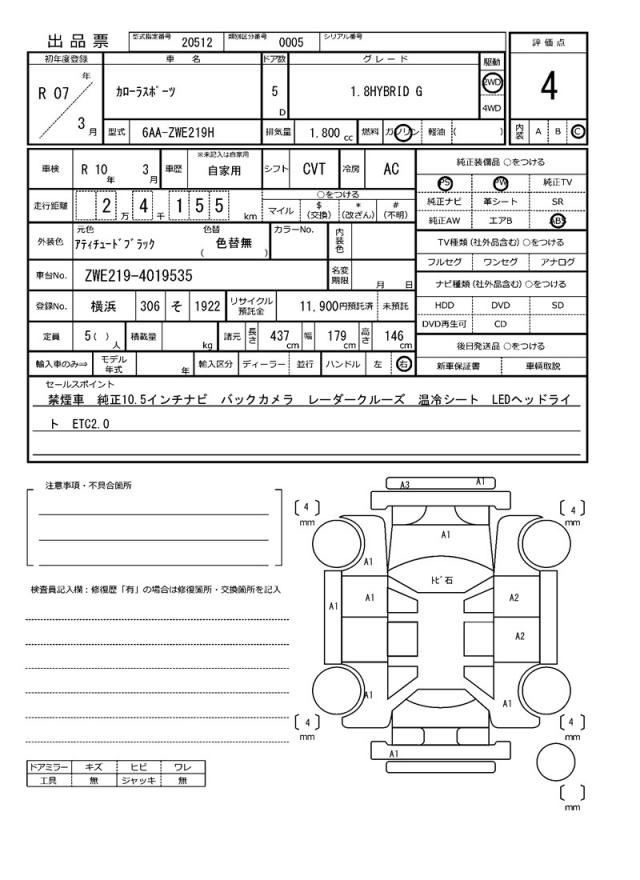 出品票
型式指定番号 20512 類別区分番号 0005 シリアル番号
評価点
4
内装 A B C
初年度登録 車名 ドア数 グレード 駆動
R 07 年 3 月
カローラスポーツ 5 D 1.8HYBRID G 2WD 4WD
型式 6AA-ZWE219H 排気量 1.800 cc 燃料 ガソリン 軽油 ( )
車検 R 10 年 3 月 車歴 ※未記入は自家用 自家用 シフト CVT 冷房 AC
走行距離 2 4 万 千 1 5 5 km
○をつける
マイル $(交換) *(改ざん) #(不明)
外装色 元色 アティチュードブラック 色替 ( 色替無 ) カラーNo. 内装色
車台No. ZWE219-4019535 名変期限 月 日
登録No. 横浜 306 そ 1922 リサイクル預託金 11,900円預託済 未預託
定員 5( ) 人 積載量 kg 諸元 長さ 437 cm 幅 179 cm 高さ 146 cm
輸入車のみ⇒ モデル年式 年 輸入区分 ディーラー 並行 ハンドル 左 右
純正装備品 ○をつける
PS PW 純正TV
純正ナビ 革シート SR
純正AW エアB ABS
TV種類 (社外品含む) ○をつける
フルセグ ワンセグ アナログ
ナビ種類 (社外品含む) ○をつける
HDD DVD SD
DVD再生可 CD
後日発送品 ○をつける
新車保証書 車輌取説
セールスポイント
禁煙車 純正10.5インチナビ バックカメラ レーダークルーズ 温冷シート LEDヘッドライ
ト ETC2.0
注意事項・不具合箇所
検査員記入欄：修復歴「有」の場合は修復箇所・交換箇所を記入
ドアミラー キズ ヒビ ワレ
工具 無 ジャッキ 無
A3 A1
[ 4 ] mm
[ 4 ] mm
A1
A1
トビ石
A1 A1 A2
A2
A1 A1
[ 4 ] mm
[ 4 ] mm
A1
[ ] mm